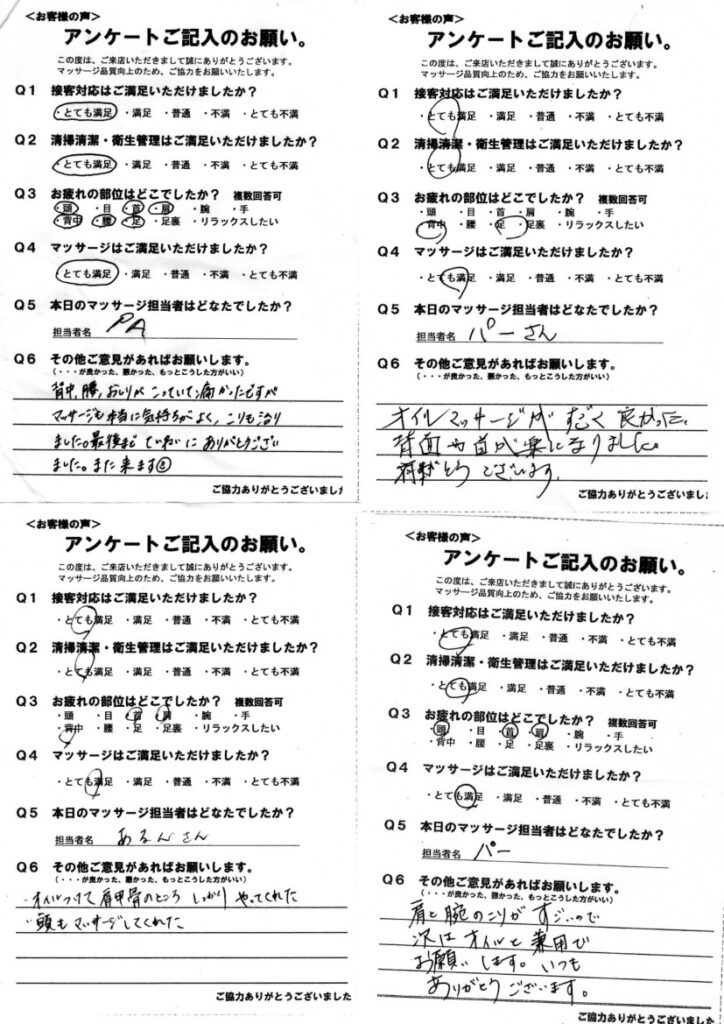 <お客様の声>
アンケートご記入のお願い。
この度は、ご来店いただきまして誠にありがとうございます。
マッサージ品質向上のため、ご協力をお願いいたします。
Q1 接客対応はご満足いただけましたか?
・とても満足 ・満足 ・普通 ・不満 ・とても不満
Q2 清掃清潔・衛生管理はご満足いただけましたか?
・とても満足 ・満足 ・普通 ・不満 ・とても不満
Q3 お疲れの部位はどこでしたか? 複数回答可
・頭 ・目 ・首 ・肩 ・腕 ・手
・背中 ・腰 ・足 ・足裏 ・リラックスしたい
Q4 マッサージはご満足いただけましたか?
・とても満足 ・満足 ・普通 ・不満 ・とても不満
Q5 本日のマッサージ担当者はどなたでしたか?
担当者名 PA
Q6 その他ご意見があればお願いします。
(・・・が良かった、悪かった、もっとこうした方がいい)
背中、腰、おしりがこっていて痛かったですが
マッサージも本当に気持ちがよく、こりも治り
ました。最後まで ていねいに ありがとうござい
ました。また来ます
ご協力ありがとうございました
<お客様の声>
アンケートご記入のお願い。
この度は、ご来店いただきまして誠にありがとうございます。
マッサージ品質向上のため、ご協力をお願いいたします。
Q1 接客対応はご満足いただけましたか?
・とても満足 ・満足 ・普通 ・不満 ・とても不満
Q2 清掃清潔・衛生管理はご満足いただけましたか?
・とても満足 ・満足 ・普通 ・不満 ・とても不満
Q3 お疲れの部位はどこでしたか? 複数回答可
・頭 ・目 ・首 ・肩 ・腕 ・手
・背中 ・腰 ・足 ・足裏 ・リラックスしたい
Q4 マッサージはご満足いただけましたか?
・とても満足 ・満足 ・普通 ・不満 ・とても不満
Q5 本日のマッサージ担当者はどなたでしたか?
担当者名 パーさん
Q6 その他ご意見があればお願いします。
(・・・が良かった、悪かった、もっとこうした方がいい)
オイルマッサージが すごく 良かった。
背面や首が楽になりました。
有難とう ございます。
ご協力ありがとうございました
<お客様の声>
アンケートご記入のお願い。
この度は、ご来店いただきまして誠にありがとうございます。
マッサージ品質向上のため、ご協力をお願いいたします。
Q1 接客対応はご満足いただけましたか?
・とても満足 ・満足 ・普通 ・不満 ・とても不満
Q2 清掃清潔・衛生管理はご満足いただけましたか?
・とても満足 ・満足 ・普通 ・不満 ・とても不満
Q3 お疲れの部位はどこでしたか? 複数回答可
・頭 ・目 ・首 ・肩 ・腕 ・手
・背中 ・腰 ・足 ・足裏 ・リラックスしたい
Q4 マッサージはご満足いただけましたか?
・とても満足 ・満足 ・普通 ・不満 ・とても不満
Q5 本日のマッサージ担当者はどなたでしたか?
担当者名 あるんさん
Q6 その他ご意見があればお願いします。
(・・・が良かった、悪かった、もっとこうした方がいい)
・オイルつけて 肩甲骨のところ しっかり やってくれた
・頭もマッサージしてくれた
ご協力ありがとうございました
<お客様の声>
アンケートご記入のお願い。
この度は、ご来店いただきまして誠にありがとうございます。
マッサージ品質向上のため、ご協力をお願いいたします。
Q1 接客対応はご満足いただけましたか?
・とても満足 ・満足 ・普通 ・不満 ・とても不満
Q2 清掃清潔・衛生管理はご満足いただけましたか?
・とても満足 ・満足 ・普通 ・不満 ・とても不満
Q3 お疲れの部位はどこでしたか? 複数回答可
・頭 ・目 ・首 ・肩 ・腕 ・手
・背中 ・腰 ・足 ・足裏 ・リラックスしたい
Q4 マッサージはご満足いただけましたか?
・とても満足 ・満足 ・普通 ・不満 ・とても不満
Q5 本日のマッサージ担当者はどなたでしたか?
担当者名 パー
Q6 その他ご意見があればお願いします。
(・・・が良かった、悪かった、もっとこうした方がいい)
肩と腕のこりが すごいので
次は オイルと 兼用で
お願いします。いつも
ありがとうございます。
ご協力ありがとうございました